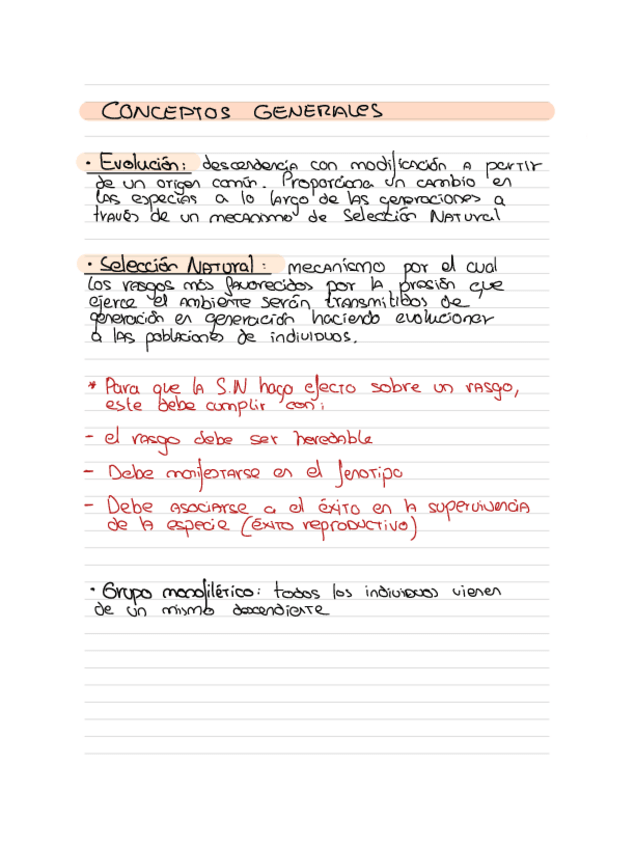 CONCEPTOS GENERALES
· Evolución: descendencia con modificación a partir
de un origen común. Proporciona un cambio en
las especies a lo largo de las generaciones a
través de un mecanismo de Selección Natural
· Selección Natural: mecanismo por el cual
los rasgos más favorecidos por la presión que
ejerce el ambiente serán transmitidos de
generación en generación haciendo evolucionar
a las poblaciones de individuos.
* Para que la S.N haga efecto sobre un rasgo,
este debe cumplir con:
- el rasgo debe ser heredable
- Debe manifestarse en el fenotipo
- Debe asociarse a el éxito en la supervivencia
de la especie (éxito reproductivo)
· Grupo monofilético: todos los individuos vienen
de un mismo descendiente